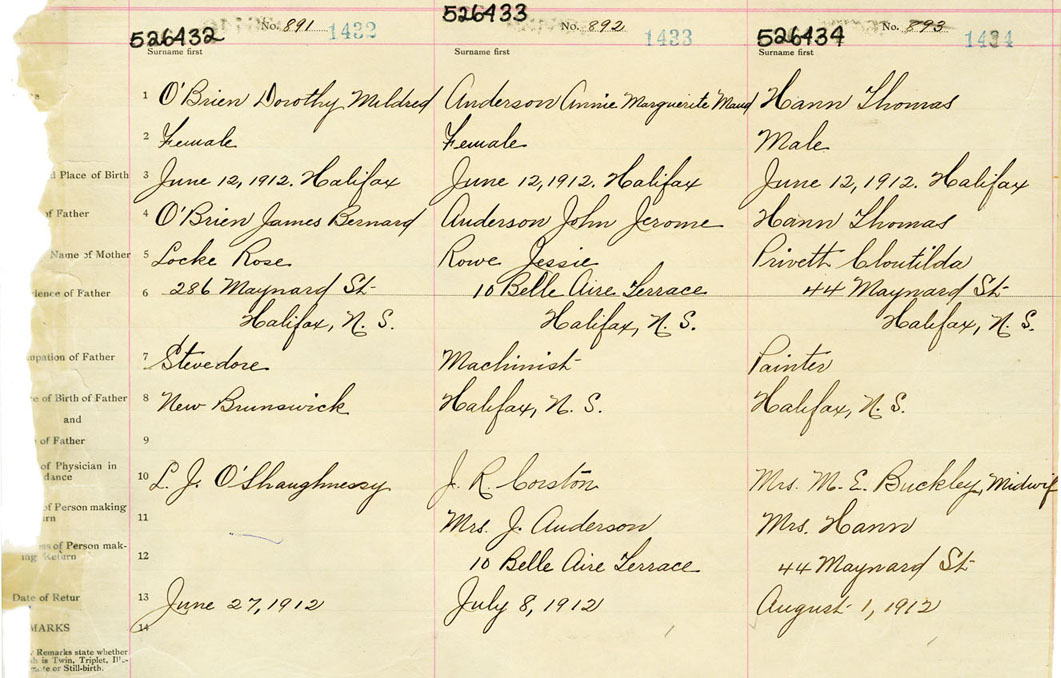 526432 No. 891 1432 526433 No. 892 1433 526434 No. 893 1434
Surname first Surname first Surname first
1 O'Brien Dorothy Mildred Anderson Annie Marguerite Maud Hann Thomas
2 Female Female Male
d Place of Birth 3 June 12, 1912. Halifax June 12, 1912. Halifax June 12, 1912. Halifax
of Father 4 O'Brien James Bernard Anderson John Jerome Hann Thomas
Name of Mother 5 Locke Rose Rowe Jessie Privett Cloutilda
dence of Father 6 286 Maynard St 10 Belle Aire Terrace 44 Maynard St
Halifax, N. S. Halifax, N. S. Halifax, N. S.
upation of Father 7 Stevedore Machinist Painter
ce of Birth of Father 8 New Brunswick Halifax, N. S. Halifax, N. S.
and
of Father 9
of Physician in
dance 10 L. J. O'Shaughnessy J. R. Corston Mrs. M. E. Buckley, Midwif
of Person making
urn 11 Mrs. J. Anderson Mrs. Hann
ss of Person mak-
ing Return 12 10 Belle Aire Terrace 44 Maynard St
Date of Retur 13 June 27, 1912 July 8, 1912 August 1, 1912
MARKS 14
Remarks state whether
h is Twin, Triplet, Ill-
mate or Still-birth.